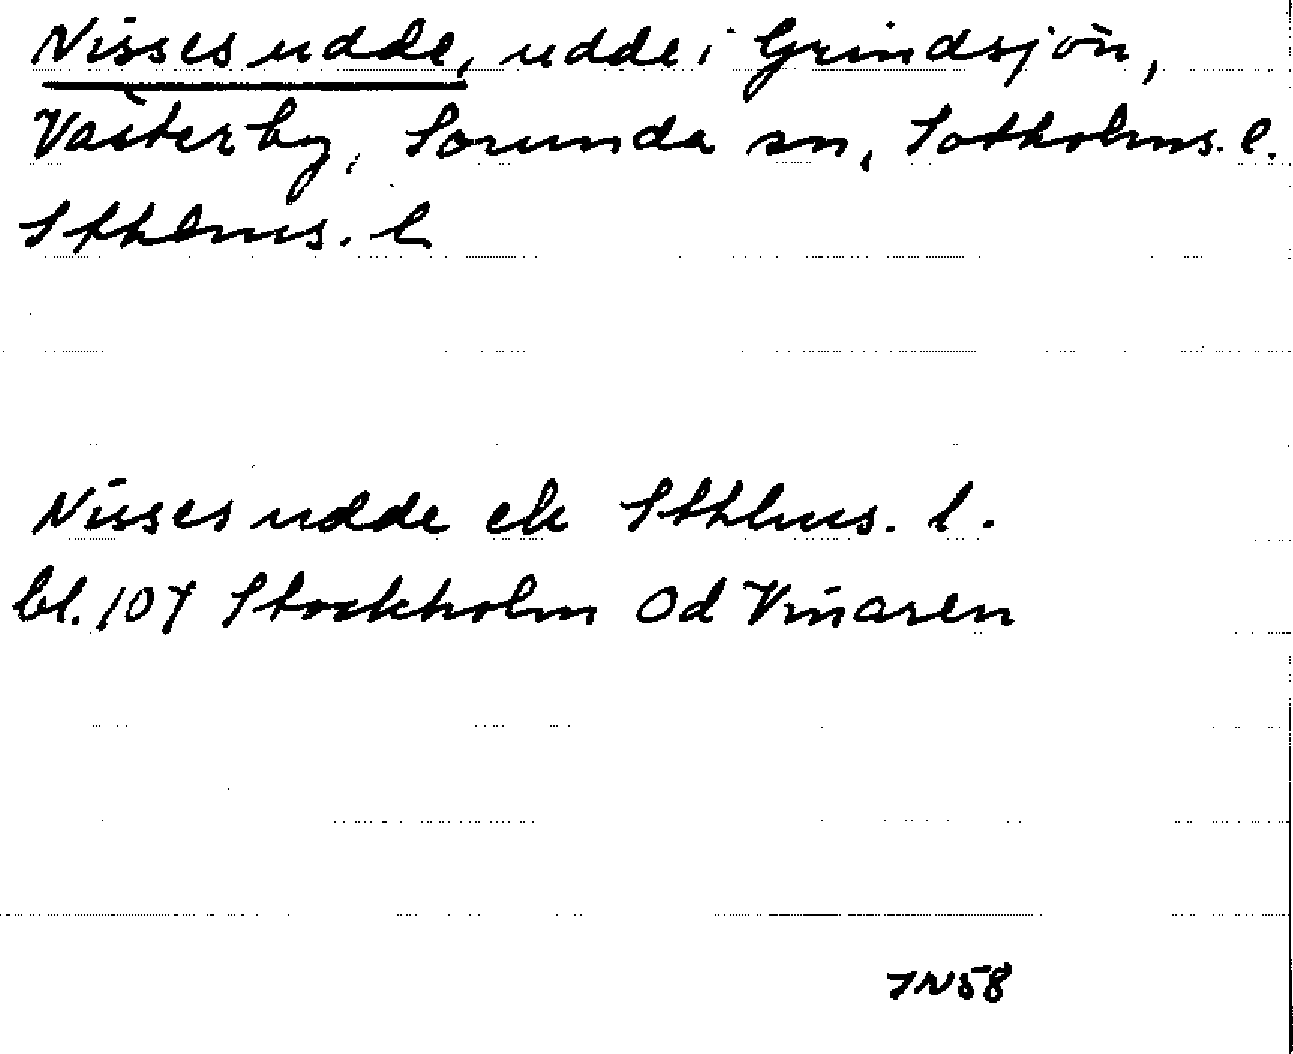 Nisses udde, udde i Grindsjön,
Västerby, Sorunda sn, Sotholms. l.
Sthlms. l
Nisses udde ek Sthlms. l.
bl. 107 Stockholm Od Vinaren
JN58